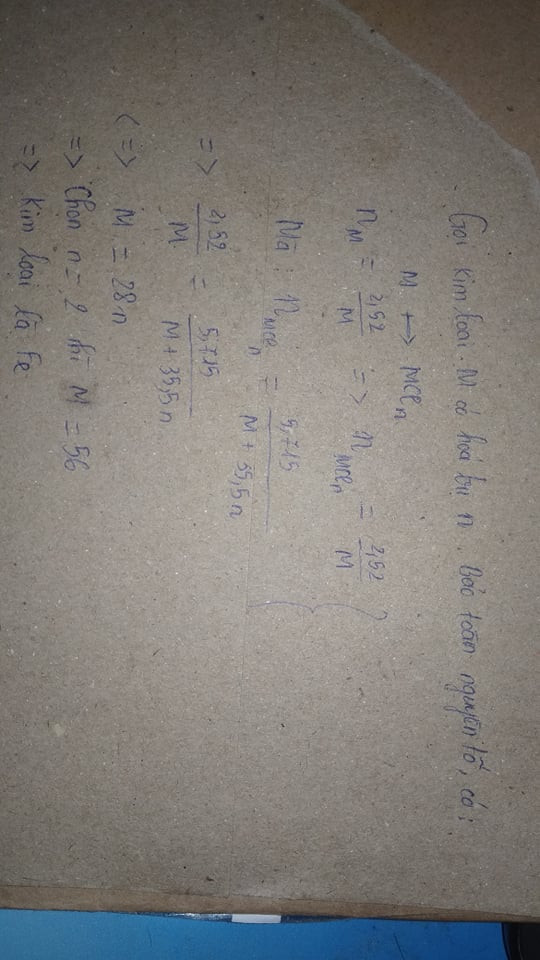 Gọi kim loại M có hoá trị n. Bảo toàn nguyên tố, có:
M ↔ MCln
nM = 2,52/M => nMCln = 2,52/M
Mà: nMCln = 5,715/(M + 35,5n)
=> 2,52/M = 5,715/(M + 35,5n)
<=> M = 28n
=> Chọn n = 2 thì M = 56
=> Kim loại là Fe